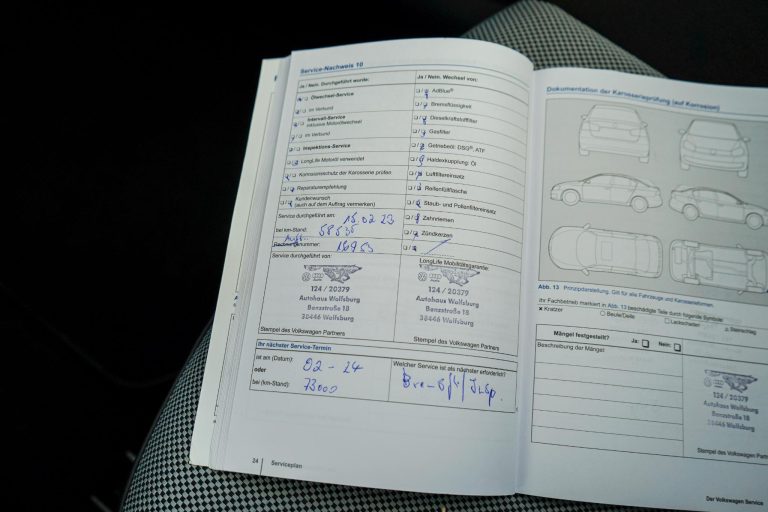 Service-Nachweis 10
Ja / Nein. Durchgeführt wurde:
Ölwechsel-Service
im Verbund
Intervall-Service
inklusive Motorölwechsel
im Verbund
Inspektions-Service
LongLife Motoröl verwendet
Korrosionsschutz der Karosserie prüfen
Reparaturempfehlung
Kundenwunsch
(auch auf dem Auftrag vermerken)
Service durchgeführt am: 15.02.23
bei km-Stand: 58535
Auft.
Rechnungsnummer: 16953
Service durchgeführt von:
124 / 20379
Autohaus Wolfsburg
Benzstraße 18
38446 Wolfsburg
Stempel des Volkswagen Partners
Ja / Nein. Wechsel von:
AdBlue®
Bremsflüssigkeit
Dieselkraftstofffilter
Gasfilter
Getriebeöl: DSG®, ATF
Haldexkupplung: Öl
Luftfiltereinsatz
Reifenfüllflasche
Staub- und Pollenfiltereinsatz
Zahnriemen
Zündkerzen
LongLife Mobilitätsgarantie
124 / 20379
Autohaus Wolfsburg
Benzstraße 18
38446 Wolfsburg
Stempel des Volkswagen Partners
Ihr nächster Service-Termin
ist am (Datum): 02 - 24
oder
bei (km-Stand): 73000
Welcher Service ist als nächster erforderlich?
24
Serviceplan
Dokumentation der Karosserieprüfung (auf Korrosion)
Abb. 13 Prinzipdarstellung. Gilt für alle Fahrzeuge und Karosserieformen.
Ihr Fachbetrieb markiert in Abb. 13 beschädigte Teile durch folgende Symbole:
x Kratzer
Beule/Delle
Lackschaden
Steinschlag
Mängel festgestellt?
Ja:
Nein:
Beschreibung der Mängel:
124 / 20379
Autohaus Wolfsburg
Benzstraße 18
38446 Wolfsburg
Stempel des Volkswagen Partners
Der Volkswagen Service